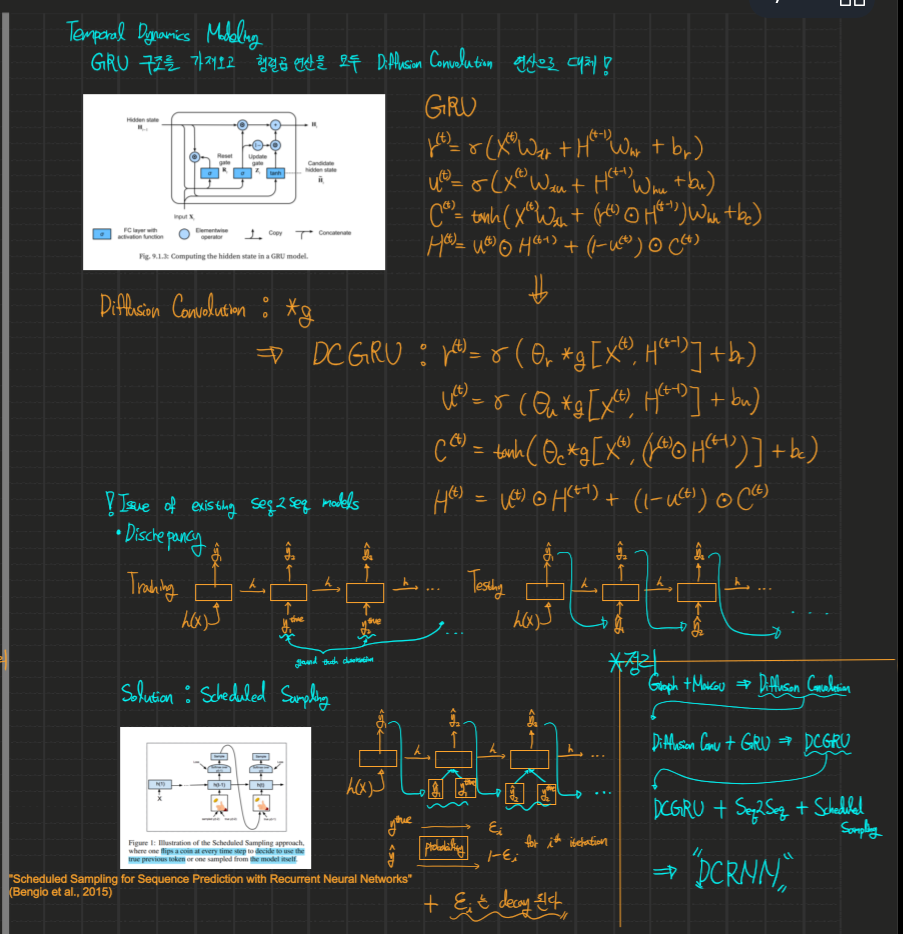 Temporal Dynamics Modeling
GRU 구조를 가져오고 행렬곱 연산을 모두 Diffusion Convolution 연산으로 대체!
Hidden state
H_{t-1}
H_t
Reset
gate
R_t
Update
gate
Z_t
Candidate
hidden state
H̃_t
σ
σ
tanh
Input X_t
σ FC layer with activation function
Elementwise operator
Copy
Concatenate
Fig. 9.1.3: Computing the hidden state in a GRU model.
GRU
r^{(t)} = σ(X^{(t)}W_{xr} + H^{(t-1)}W_{hr} + b_r)
u^{(t)} = σ(X^{(t)}W_{xu} + H^{(t-1)}W_{hu} + b_u)
C^{(t)} = tanh(X^{(t)}W_{xh} + (r^{(t)} ⊙ H^{(t-1)})W_{hh} + b_c)
H^{(t)} = u^{(t)} ⊙ H^{(t-1)} + (1-u^{(t)}) ⊙ C^{(t)}
⇓
Diffusion Convolution : *g
⇒ DCGRU : r^{(t)} = σ(Θ_r *g [X^{(t)}, H^{(t-1)}] + b_r)
u^{(t)} = σ(Θ_u *g [X^{(t)}, H^{(t-1)}] + b_u)
C^{(t)} = tanh(Θ_c *g [X^{(t)}, (r^{(t)} ⊙ H^{(t-1)})] + b_c)
H^{(t)} = u^{(t)} ⊙ H^{(t-1)} + (1-u^{(t)}) ⊙ C^{(t)}
! Issue of existing seq2seq models
• Discrepancy
Training
ŷ_1 ŷ_2 ŷ_3
h h h ...
h(X) y_1^{true} y_2^{true} ...
Testing
ŷ_1 ŷ_2 ŷ_3
h h ...
h(X) ŷ_1 ŷ_2 ....
Solution : Scheduled Sampling
Figure 1: Illustration of the Scheduled Sampling approach,
where one flips a coin at every time step to decide to use the
true previous token or one sampled from the model itself.
"Scheduled Sampling for Sequence Prediction with Recurrent Neural Networks"
(Bengio et al., 2015)
ŷ_1 ŷ_2 ŷ_3
h h h ...
h(X) ŷ_1 y_1^{true} ŷ_2 y_2^{true} ...
y^{true} ε_i
probability for i^{th} iteration
ŷ 1-ε_i
+ ε_i는 decay 한다
*정리
Graph + Markov ⇒ Diffusion Convolution
Diffusion Conv + GRU ⇒ DCGRU
DCGRU + Seq2Seq + Scheduled
Sampling
⇒ "DCRNN"